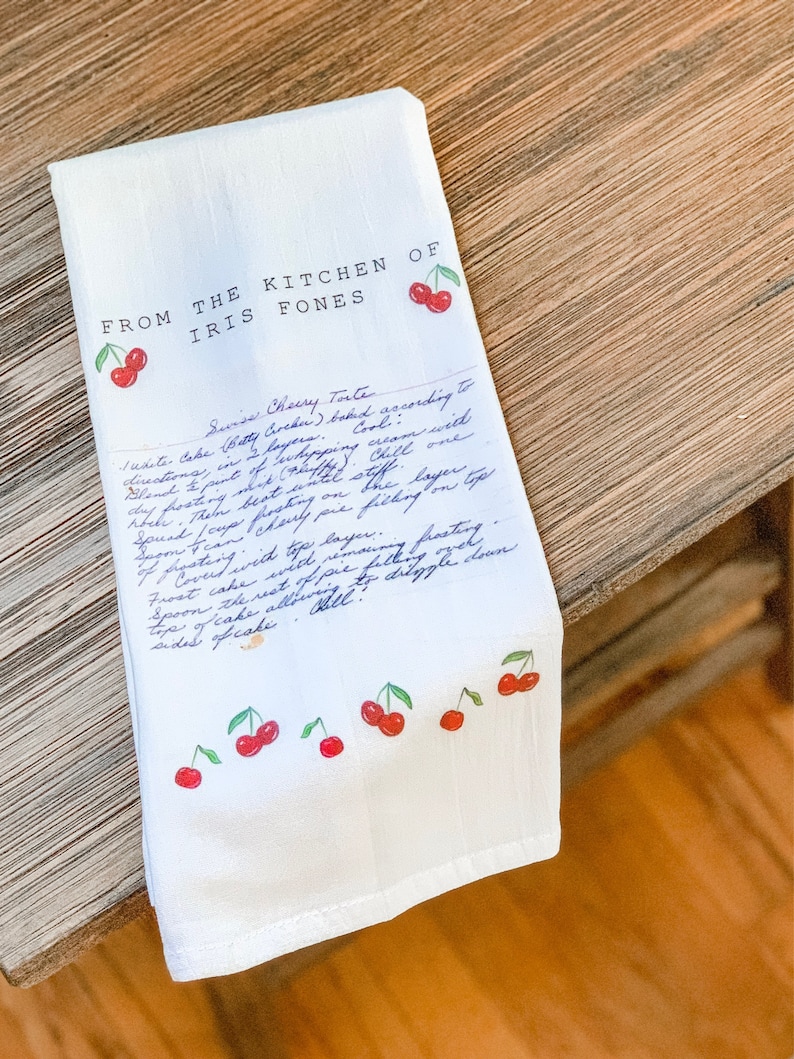 FROM THE KITCHEN OF
IRIS FONES
Swiss Cherry Torte
1 White Cake (Betty Crocker) baked according to
directions, in 2 layers. Cool!
Blend ½ pint of whipping cream with
dry frosting mix (Fluffy). Chill one
hour. Then beat until stiff.
Spread 1 cup frosting on one layer
Spoon ½ can cherry pie filling on top
of frosting.
Cover with top layer.
Frost cake with remaining frosting.
Spoon the rest of pie filling over
top of cake allowing to drizzle down
sides of cake. Chill!